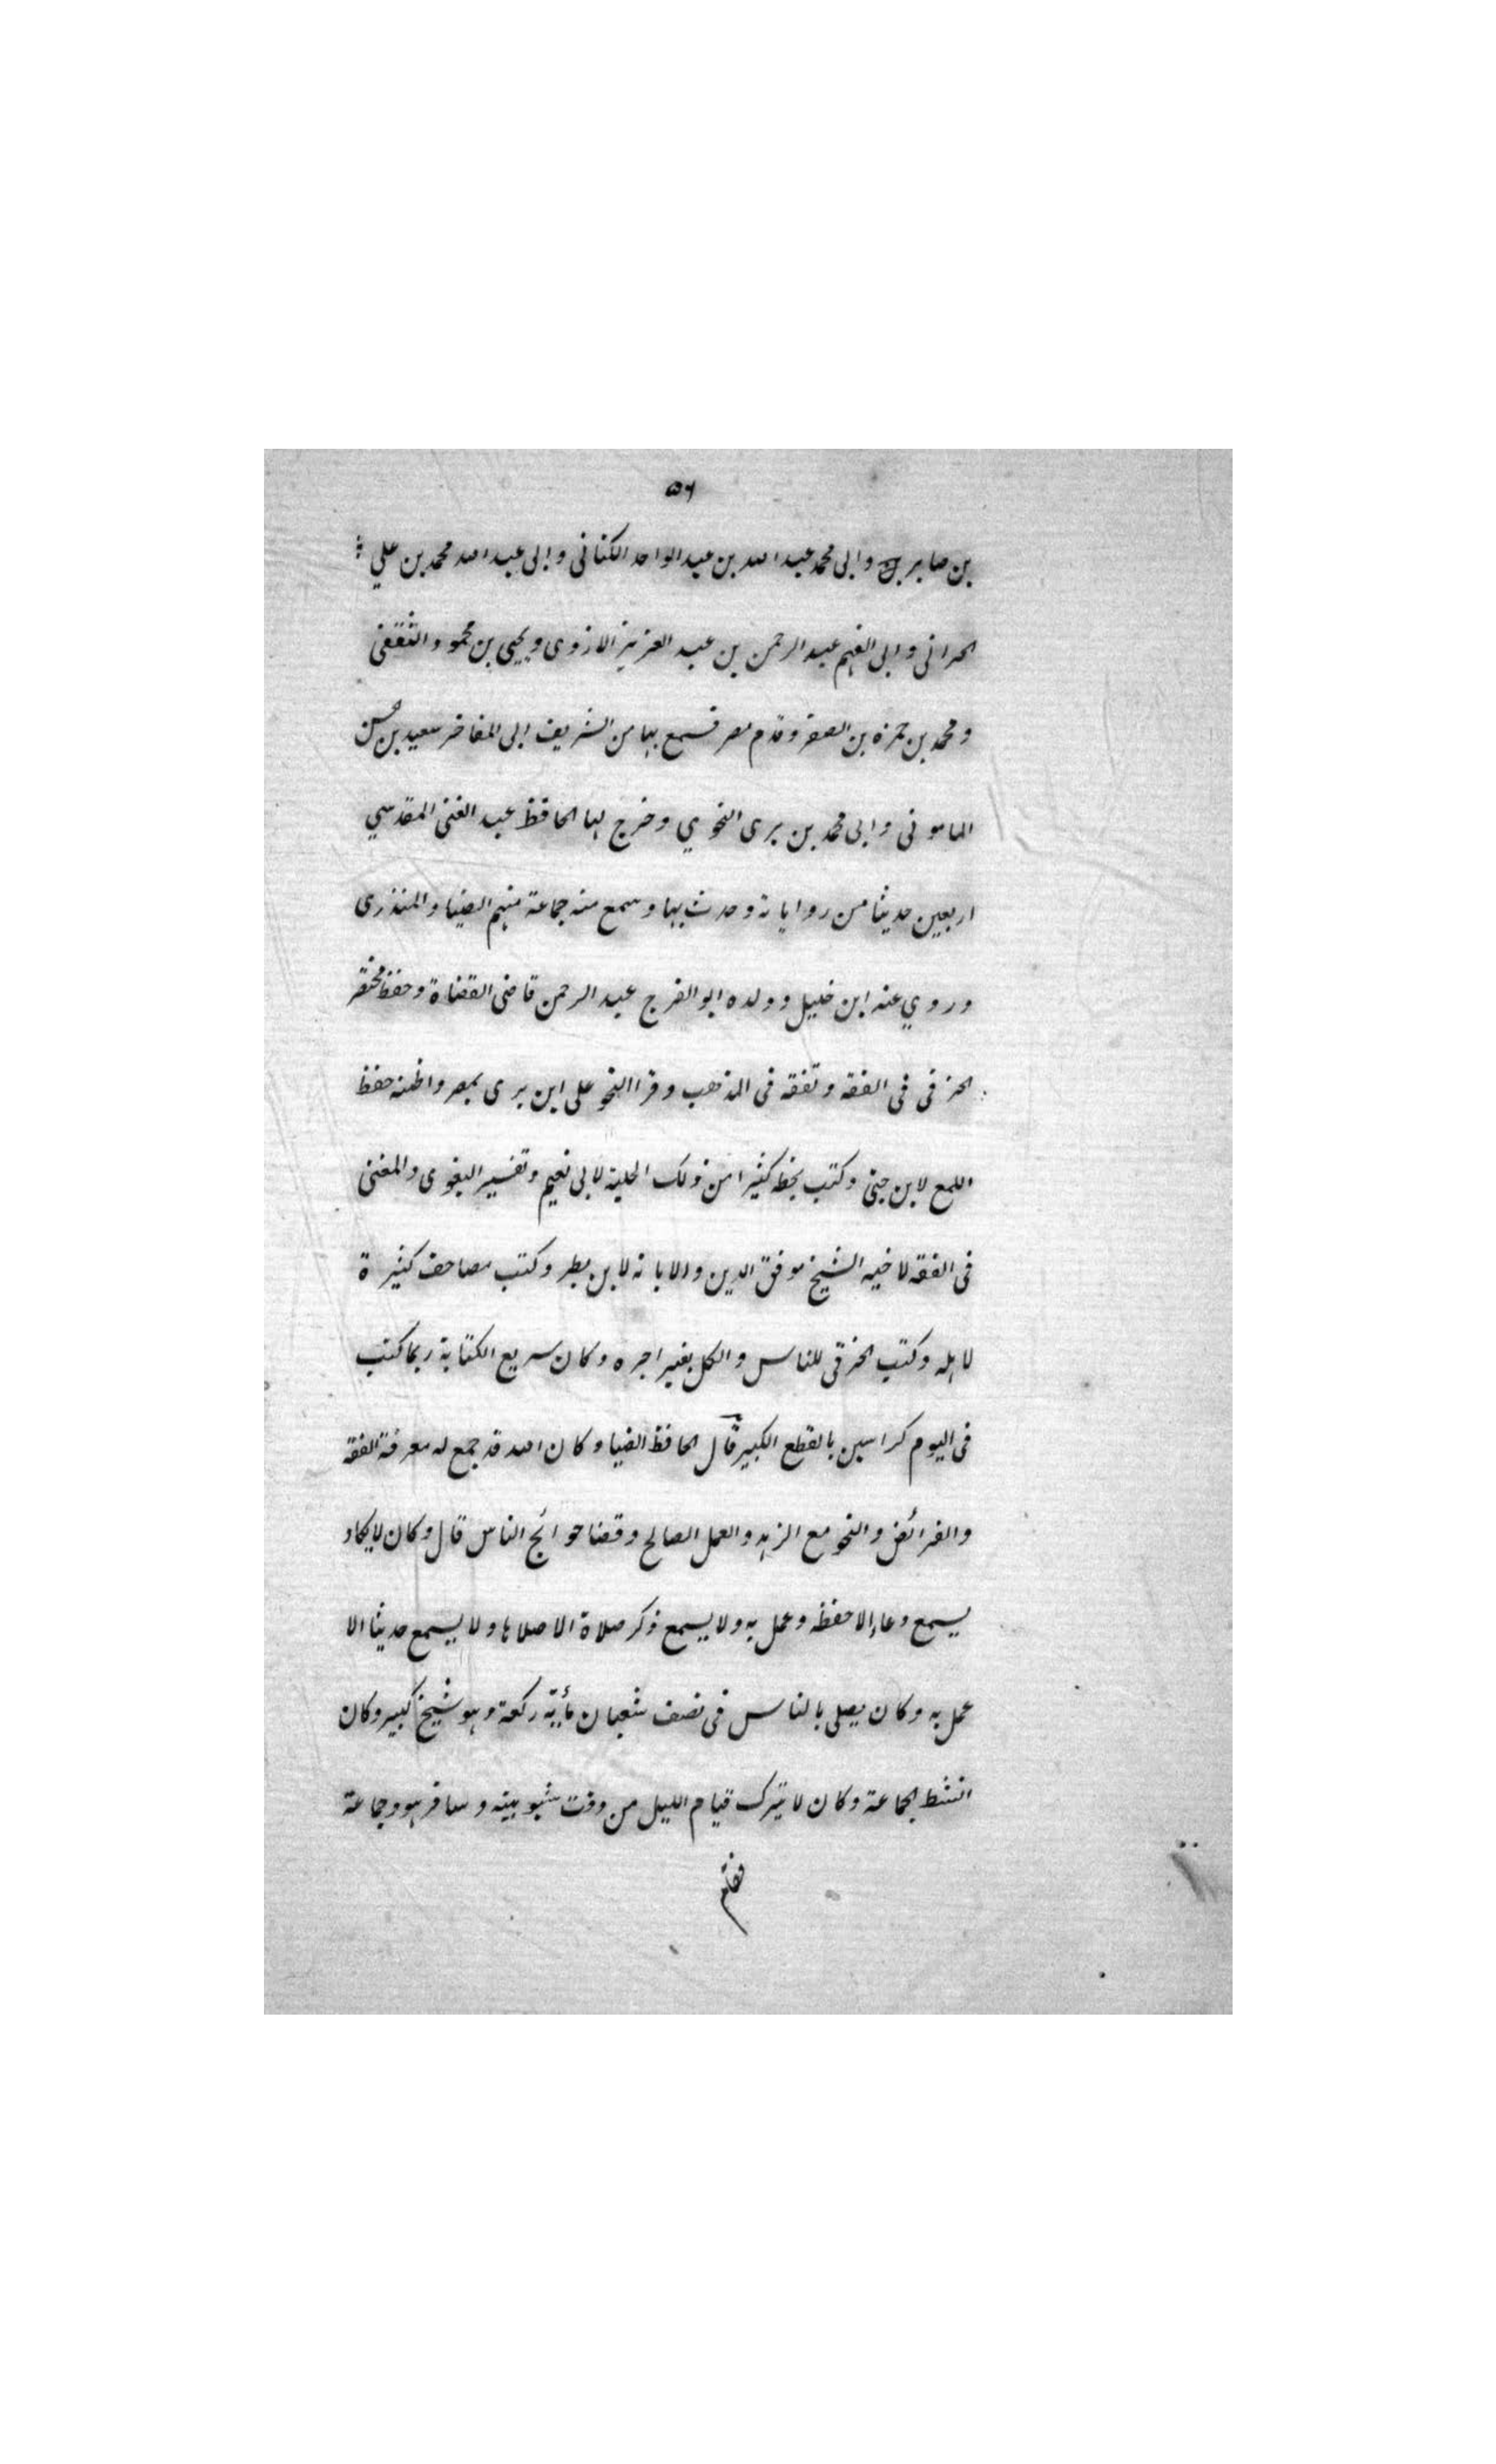 ٥٦
بن صابر وابى محمد عبد الله بن عبد الواحد الكنانى وابى عبد الله محمد بن علي
الحرانى وابى الفهم عبد الرحمن بن عبد العزيز الازدى ويحيى بن محمود الثقفى
ومحمد بن حمزه بن الصقر وقدم مصر فسمع بها من الشريف ابى المفاخر سعيد بن الحسن
المامونى وابى محمد بن برى النحوي وخرج لها الحافظ عبد الغنى المقدسي
اربعين حديثا من رواياته وحدث بها وسمع منه جماعة منهم الضيا والمنذرى
وروي عنه ابن خليل وولده ابو الفرج عبد الرحمن قاضى القضاة وحفظ مختصر
الخرقى فى الفقه وتفقه فى المذهب وقرا النحو على ابن برى بمصر واظنه حفظ
اللمع لابن جنى وكتب بخط كثيرا من ذلك الحلية لابى نعيم وتفسير البغوى والمغنى
فى الفقه لاخيه الشيخ موفق الدين والابانه لابن بطر وكتب مصاحف كثيرة
لاهله وكتب الخرقى للناس والكل بغير اجره وكان سريع الكتابة ربما كتب
فى اليوم كراسين بالقطع الكبير قال الحافظ الضيا وكان الله قد جمع له معرفة الفقه
والفرائض والنحو مع الزهد والعمل الصالح وقضا حوائج الناس قال وكان لا يكاد
يسمع دعاء الا حفظه وعمل به ولا يسمع ذكر صلاة الا صلاها ولا يسمع حديثا الا
عمل به وكان يصلى بالناس فى نصف شعبان مأية ركعة وهو شيخ كبير وكان
انشط الجماعة وكان لا يترك قيام الليل من وقت شبوبيته وسافر هو وجماعة
فقام